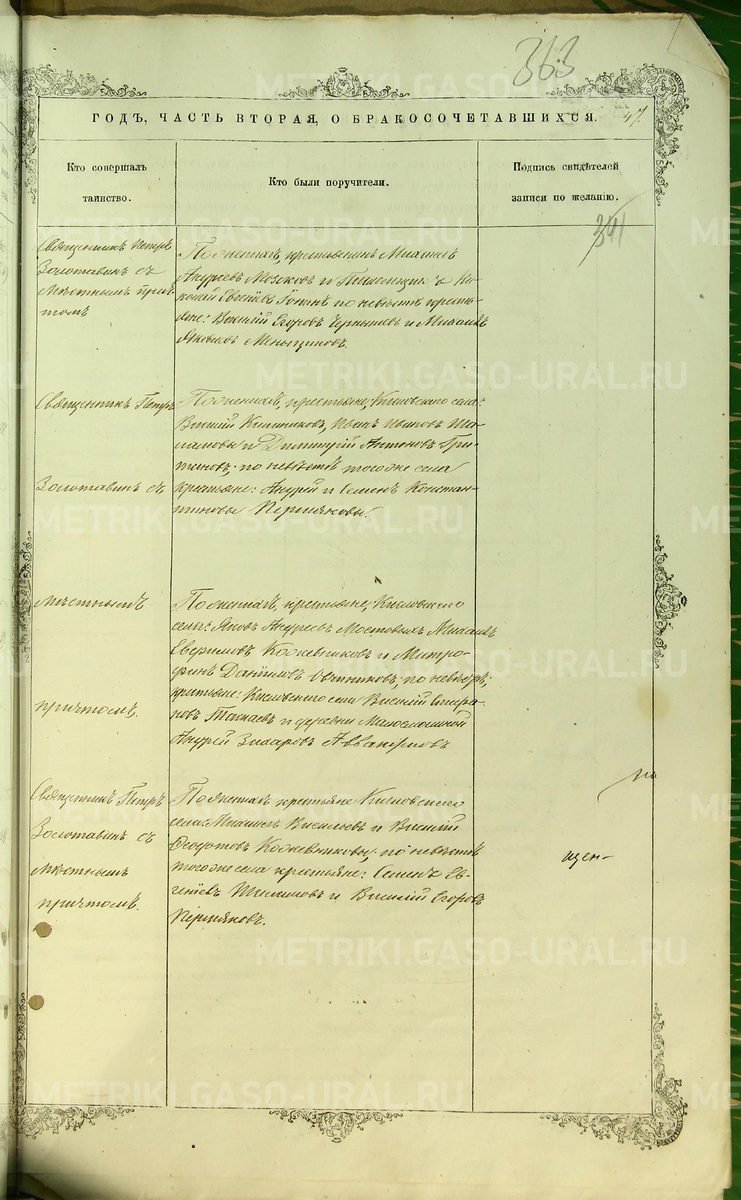 363
ГОДЪ, ЧАСТЬ ВТОРАЯ, О БРАКОСОЧЕТАВШИХСЯ.
47
Кто совершалъ
таинство.
Кто были поручители.
Подпись свидѣтелей
записи по желанію.
Священникъ Петръ
Золотавинъ съ
мѣстнымъ прич
томъ
По женихѣ, крестьянинъ Михаилъ
Андреевъ и
по невѣстѣ кресть
яне: Василій Егоровъ Чернышевъ и Михаилъ
Яковлевъ Меньшиковъ.
Священникъ Петръ
Золотавинъ съ
По женихѣ, крестьяне, Кисловскаго села:
Василій Иванъ Ивановъ
и Димитрій Антоновъ
по невѣстѣ тогоже села
крестьяне: Андрей и Семенъ Констан
тиновы Пермяковы
мѣстнымъ
причтомъ.
По женихѣ, крестьяне, Кисловскаго
села: Яковъ Андреевъ Мостовыхъ Михаилъ
Кожевниковъ и Митро
фанъ Даніиловъ Овчинниковъ; по невѣстѣ,
крестьяне: Кисловскаго села Василій Стефа
новъ и деревни
Андрей Захаровъ
Священникъ Петръ
Золотавинъ съ
мѣстнымъ
причтомъ.
По женихѣ крестьяне Кисловскаго
села: Михаилъ Васильевъ и Василій
Ѳедотовъ Кожевниковы; по невѣстѣ
тогоже села крестьяне: Семенъ Ев
геніевъ и Василій Егоровъ
Пермяковъ.
по
щен-
METRIKI.GASO-URAL.RU